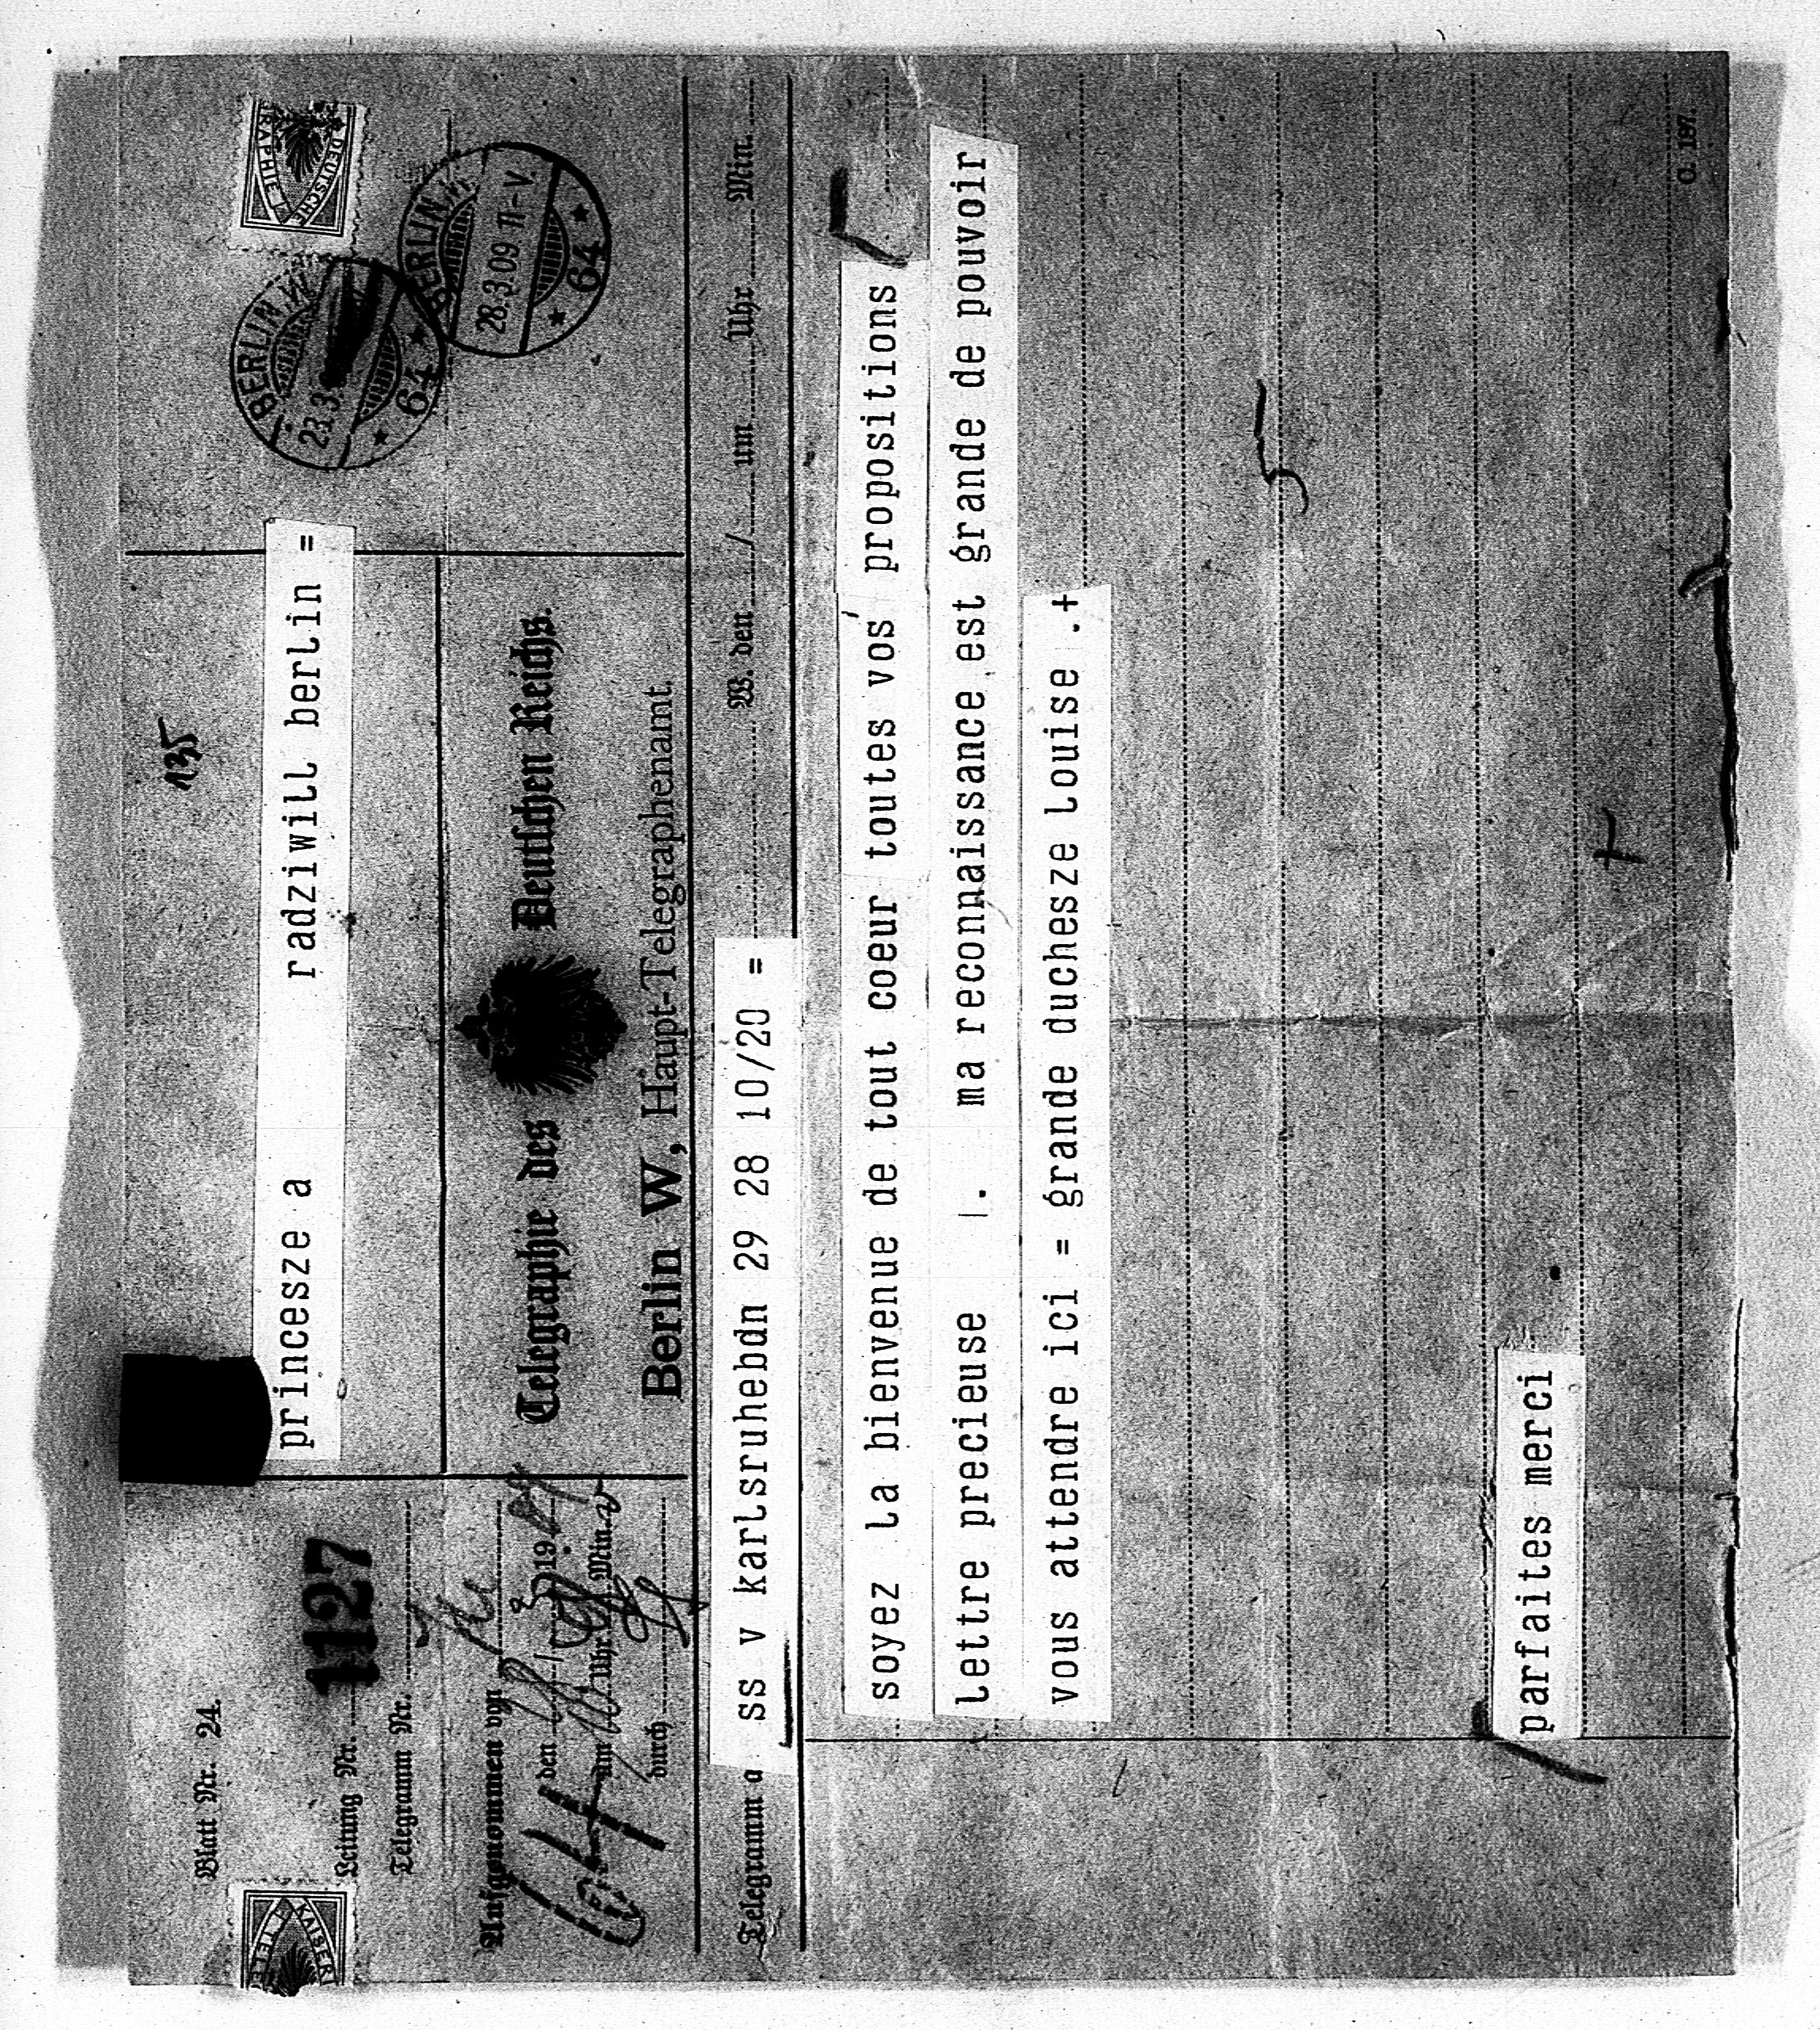 135
princesze a radziwill berlin =
Blatt Nr. 24.
Leitung Nr. 1127
Telegramm Nr.
Aufgenommen von
den 19
um Uhr Min.
durch
Telegraphie des Deutschen Reichs.
Berlin W, Haupt-Telegraphenamt.
DEUTSCHE
BERLIN W
23.3
64
BERLIN W
28.3.09 11-V
64
KAISER
Telegramm a ss v karlsruhebdn 29 28 10/20 = W. den / um Uhr Min.
soyez la bienvenue de tout coeur toutes vos propositions
parfaites merci
lettre precieuse . ma reconnaissance est grande de pouvoir
vous attendre ici = grande duchesze louise .+
C. 187.